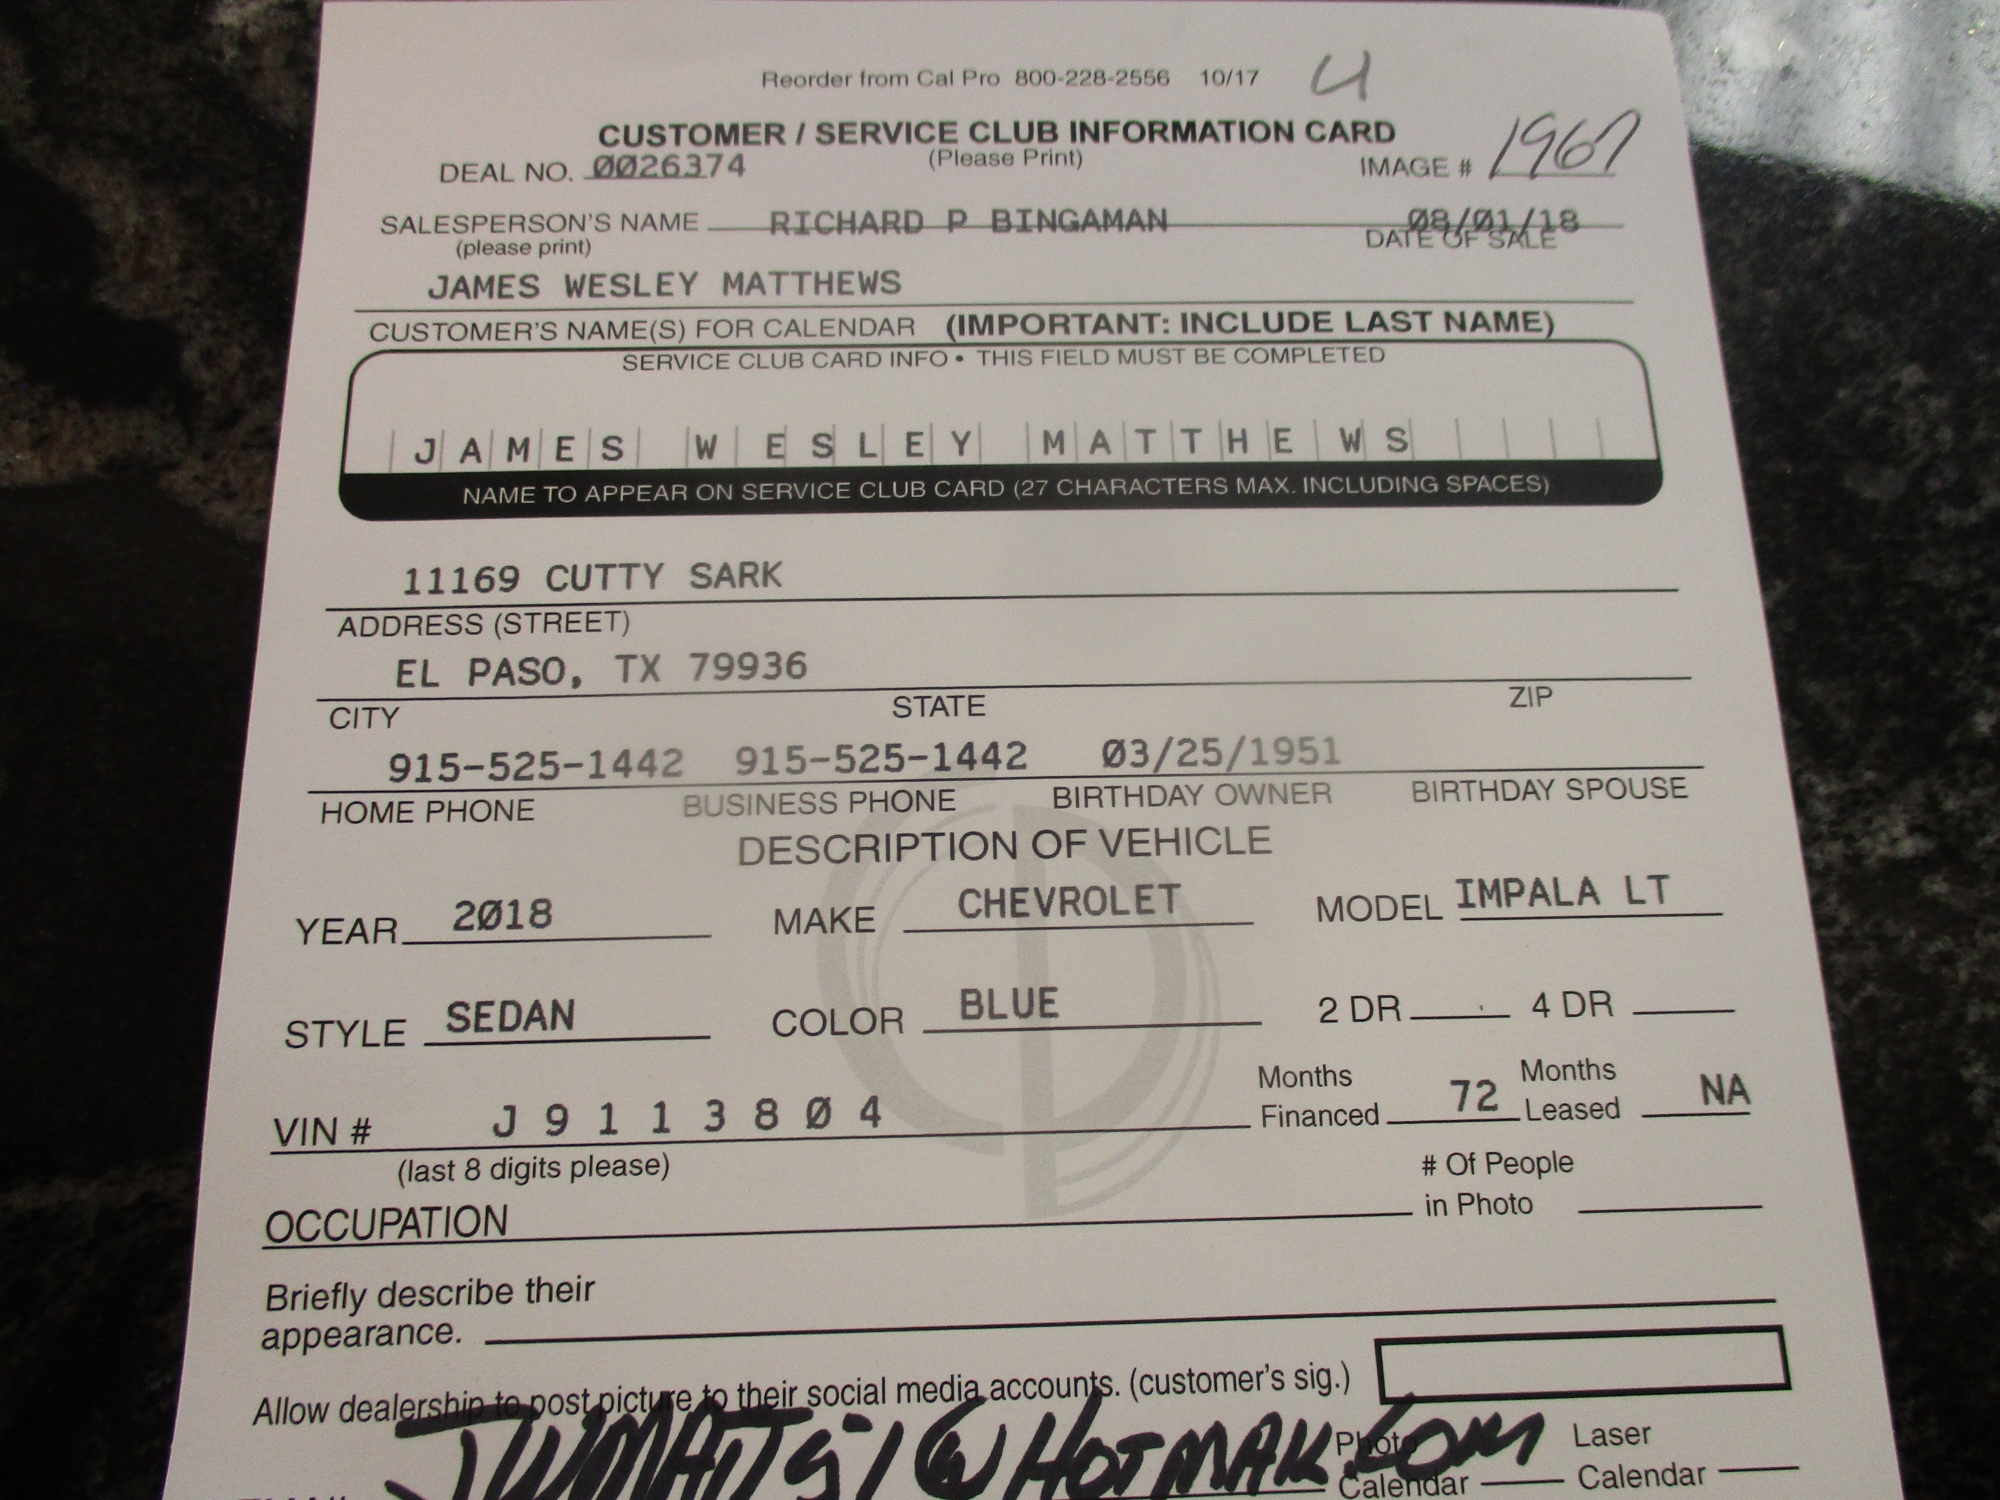 Reorder from Cal Pro 800-228-2556 10/17 4
CUSTOMER / SERVICE CLUB INFORMATION CARD
(Please Print)
DEAL NO. 0026374
IMAGE # 1967
SALESPERSON'S NAME RICHARD P BINGAMAN 08/01/18
(please print) DATE OF SALE
JAMES WESLEY MATTHEWS
CUSTOMER'S NAME(S) FOR CALENDAR (IMPORTANT: INCLUDE LAST NAME)
SERVICE CLUB CARD INFO • THIS FIELD MUST BE COMPLETED
JAMES WESLEY MATTHEWS
NAME TO APPEAR ON SERVICE CLUB CARD (27 CHARACTERS MAX. INCLUDING SPACES)
11169 CUTTY SARK
ADDRESS (STREET)
EL PASO, TX 79936
CITY STATE ZIP
915-525-1442 915-525-1442 03/25/1951
HOME PHONE BUSINESS PHONE BIRTHDAY OWNER BIRTHDAY SPOUSE
DESCRIPTION OF VEHICLE
YEAR 2018 MAKE CHEVROLET MODEL IMPALA LT
STYLE SEDAN COLOR BLUE 2 DR 4 DR
Months Months
VIN # J9113804 Financed 72 Leased NA
(last 8 digits please)
# Of People
OCCUPATION in Photo
Briefly describe their
appearance.
Allow dealership to post picture to their social media accounts. (customer's sig.)
Photo Laser
Calendar Calendar